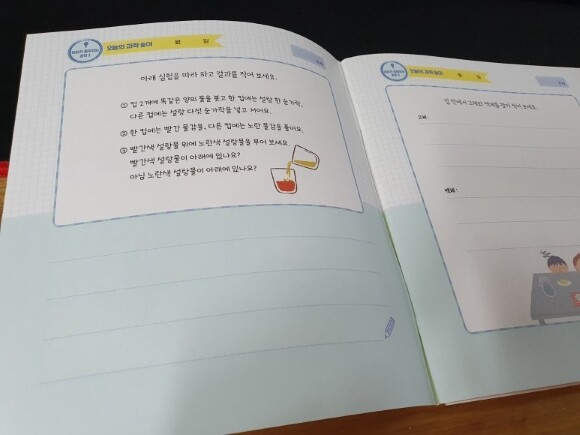 오늘의 과학 놀이 월 일
아래 실험을 따라 하고 결과를 적어 보세요.
① 컵 2개에 똑같은 양의 물을 붓고 한 컵에는 설탕 한 숟가락,
다른 컵에는 설탕 다섯 숟가락을 넣고 저어요.
② 한 컵에는 빨간 물감을, 다른 컵에는 노란 물감을 풀어요.
③ 빨간색 설탕물 위에 노란색 설탕물을 부어 보세요.
빨간색 설탕물이 아래에 있나요?
아님 노란색 설탕물이 아래에 있나요?
오늘의 과학 놀이 월 일
집 안에서 고체와 액체를 찾아 적어 보세요.
고체 :
액체 :